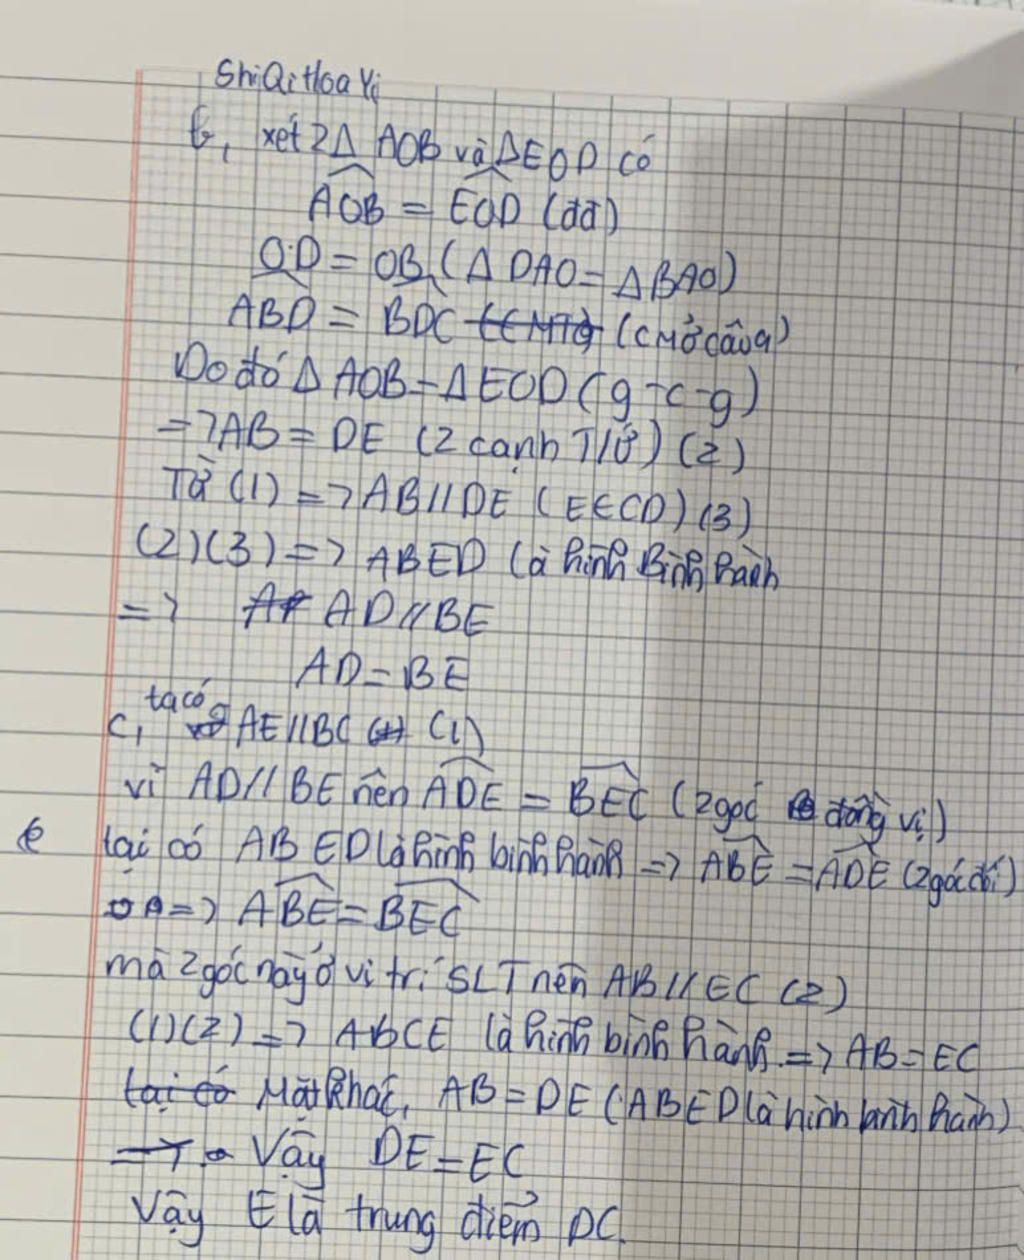 ShiQiHoa Yi
b, xét 2Δ AOB và ΔEOD có
AOB = EOD (đđ)
OD = OB (Δ DAO = Δ BAO)
ABD = BDC (CMở câu a)
Do đó Δ AOB = Δ EOD (g-c-g)
=> AB = DE (2 cạnh T/Ứ) (2)
Từ (1) => AB // DE (E ∈ CD) (3)
(2)(3) => ABED là hình Bình hành
=> AD // BE
AD = BE
c, ta có AE // BC (1)
vì AD // BE nên ADE = BEC (2 góc đồng vị)
lại có ABED là hình bình hành => ABE = ADE (2 góc đối)
=> ABE = BEC
mà 2 góc này ở vi trí SLT nên AB // EC (2)
(1)(2) => ABCE là hình bình hành. => AB = EC
Mặt khác, AB = DE (ABED là hình bình hành)
Vậy DE = EC
Vậy E là trung điểm DC.